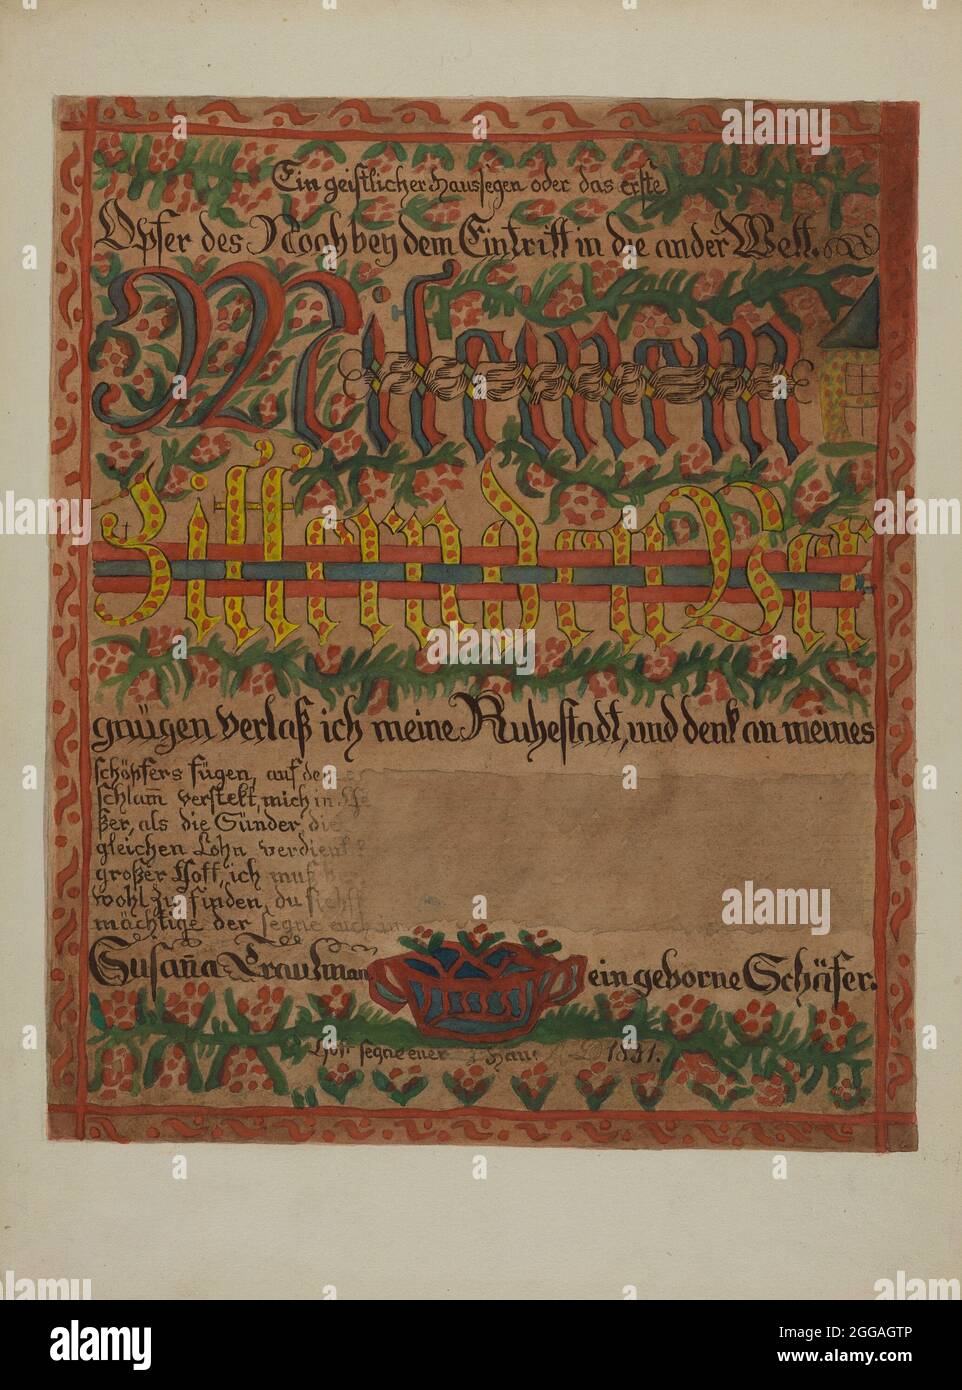 Ein geistlicher Haussegen oder das erste
Opfer des Noch bey dem Eintritt in die ander Welt.
Mit einem
Zitternden Ver
gnügen verlaß ich meine Ruhestadt, und denk an meines
schöpfers fügen, auf de
schlam̅ verstekt, mich in
ßer, als die Sünder, die
gleichen Lohn verdient
großer Gott, ich muß
wohl zu finden, du siehst
mächtige der segne euch im
Susan̅a Trautman ein geborne Schäfer.
Gott segne euer Haus 1831.
alamy
Image ID: 2GGAGTP
www.alamy.com